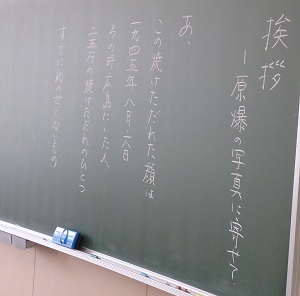 挨拶
―原爆の写真に寄せて
あ、
この焼けただれた顔は
一九四五年八月六日
その時広島にいた人
二五万の焼けただれのひとつ
すでに此の世にないもの